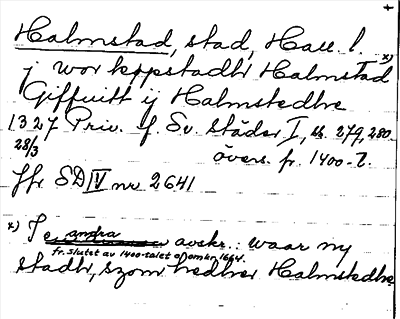 Halmstad, stad, Hall. l.
j wor køpstadh Halmstad x)
Giffuitt ij Halmstedhe
1327 Priv. f. Sv. Städer I, s. 279, 280.
28/3 övers. fr. 1400-t.
Jfr SD IV nr 2641
x) Te andra avskr.: waar ny
fr. slutet av 1400-talet o. omkr. 1664.
stadh, szom hedher Halmstedhe